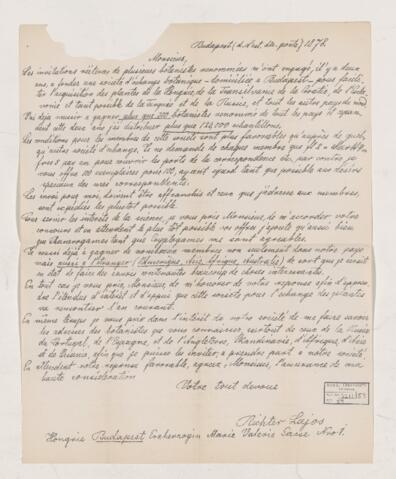 Budapest (d. d'est. de. poste) 1878.
Monsieur,
Les invitations réitérées de plusieurs botanistes renommées m'ont engagé, il y a deux
ans, à fonder une société d'échange botanique - domiciliée à Budapest - pour facili-
ter l'acquisition des plantes de la Hongrie, de la Transsilvanie, de la Croatie, de
et tout possible de la Turquie et de la Russie, et tout les autres pays du nord.
J'ai déjà réussi à gagner plus que botanistes renommés de tout les pays et ayant
dont cette deux ans j'ai distribué plus que 122,000 échantillons.
Les conditions pour les membres de cette société sont plus favorables qu'auprès de quel-
qu'autre société d'échange. Je ne demande de chaque membre que
pour couvrir les ports de la correspondence etc. par contre, je
vous offre exemplaires pour 100, ayant quand tant que possible aux désirs
spéciaux des mes correspondents.
Les envois pour moi, doivent être affranchis et ceux que j'adresse aux membres,
sont expédiés les plus tôt possible.
Pour servir les interets de la science, je vous prie Monsieur, de m'accorder votre
concours et en attendant le plus tôt possible vos offres j'ajoute qu'aussi bien
que Phanerogames tant que Cryptogames me sont agréables.
Je réussi déjà à gagner de nombreux membres non seulement dans notre pays
mais aussi à l'étranger (Amerique, Asie, Afrique, Australie) de sort que je serait
en état de faire des envois contenants beaucoup de choses interessants.
En tout cas je vous prie, Monsieur, de m'honorer de votre reponse afin d'apren-
dre l'étendue d'intérêt et d'appui que cette société pour l'échange des plantes
va rencontrer l'en courant.
En même temps je vous prie dans l'intérêt de notre société de me faire savoir
les adresses des botanistes que vous connaissez, surtout de ceux de la Russie
du Portugal, de l'Espagne, et de l'Angleterre, Skandinavie, d'Afrique, d'Asie
et de afin que je puisse les inviter, à prendre part à notre société.
En attendant votre reponse favorable, agréez, Monsieur, l'assurance de ma
haute considération
Votre tout devoué
Richter Lajos
Hongrie Budapest Erzherzogin Marie Valerie Gasse Nro 1.